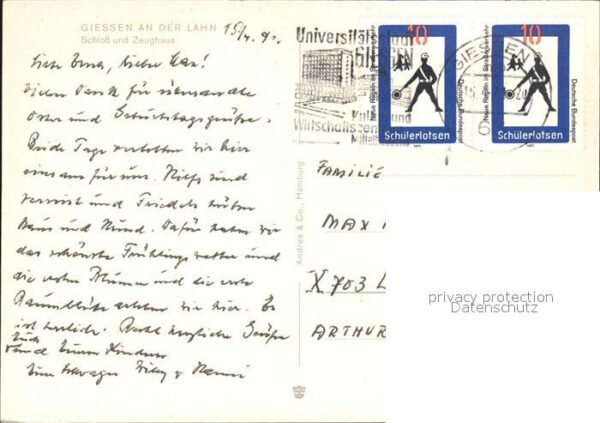 GIESSEN AN DER LAHN
Schloß und Zeughaus
15/4. 71.
Liebe Erna, lieber Max!
Vielen Dank für
Oster und Geburtstagsgrüße.
Beide Tage verlebten wir hier
einsam für uns. und
verreist und Friedels hüten
Haus und Hund. Dafür haben wir
das schönste Frühlingswetter und
die ersten Blumen und die erste
Baumblüte erleben wir hier. Es
ist herrlich. Recht herzliche Grüße
Euch
und Euren Kindern
Euer Schwager Willy &
Andres & Co., Hamburg
Universitätsstadt
GIESSEN
Kultur- und
Wirtschaftszentrum
Mittelhessens
GIESSEN
10
Neue Regeln im Straßenverkehr
Deutsche Bundespost
Schülerlotsen
10
Neue Regeln im Straßenverkehr
Deutsche Bundespost
Schülerlotsen
FAMILIE
MAX
X 703 L
ARTHUR
privacy protection
Datenschutz